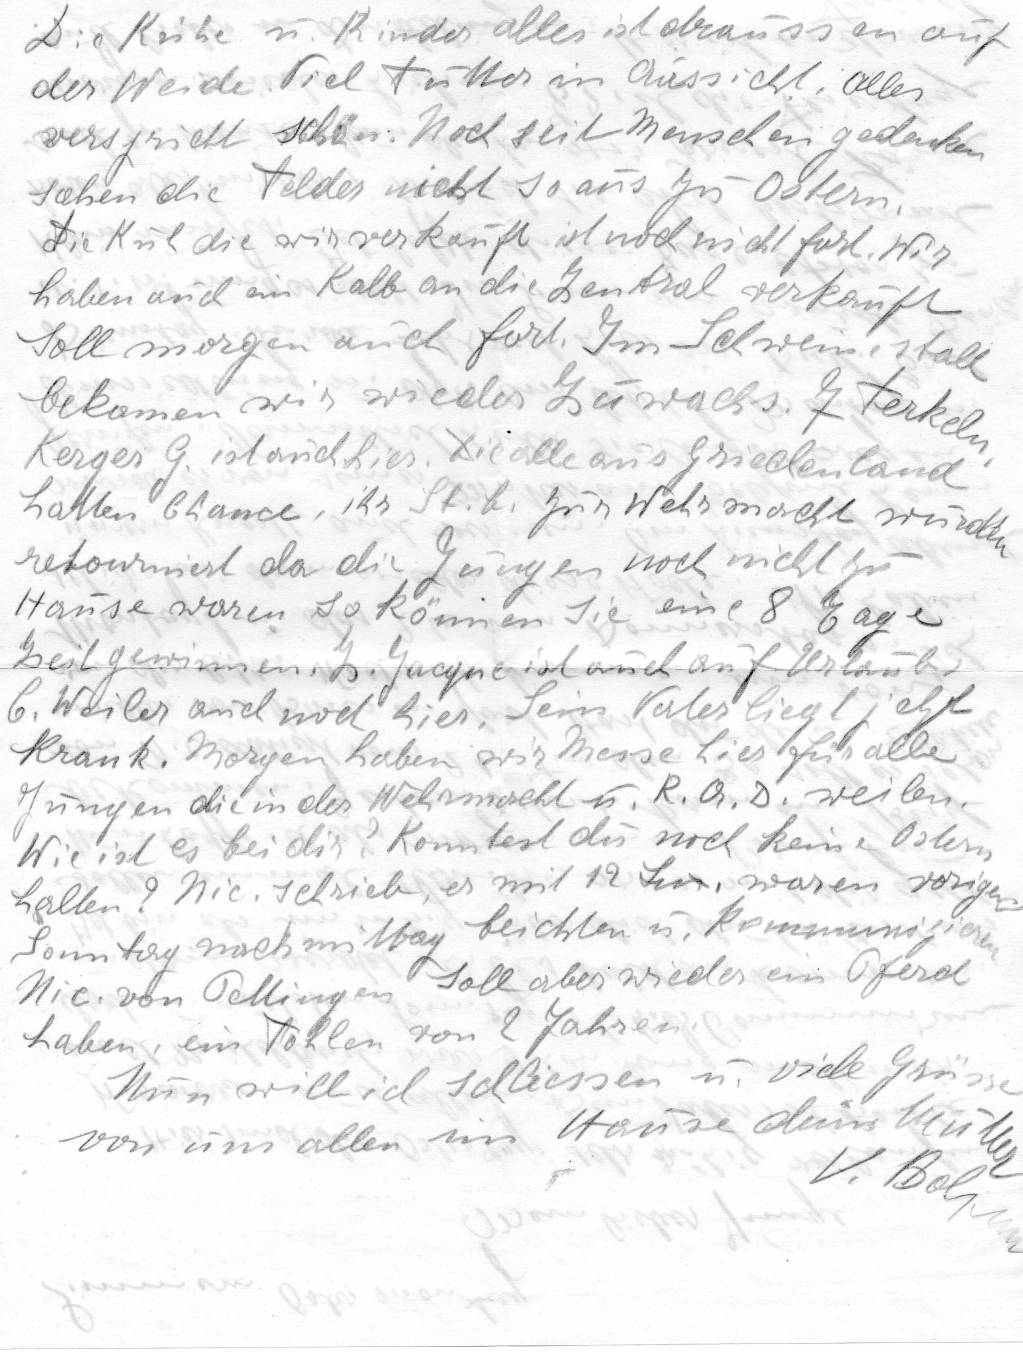 Die Kühe u. Rinder alles ist draussen auf
der Weide. Viel Futter in Aussicht, alles
verspricht schön. Noch seit Menschen gedenken
sahen die Felder nicht so aus zu Ostern.
Die Kuh die wir verkauft ist noch nicht fort. Wir
haben auch ein Kalb an die Zentral verkauft
soll morgen auch fort. Im Schweinestall
bekamen wir wieder Zuwachs. 7 Ferkeln.
Kerger G. ist auch hier. Die alle aus Griechenland
hatten Chance, ihr St. b. zur Wehrmacht wurden
retourniert da die Jungen noch nicht zu
Hause waren so können sie eine 8 Tage
Zeit gewinnen. Z. Jacque ist auch auf Urlaub,
C. Weiler auch noch hier. Sein Vater liegt jetzt
krank. Morgen haben wir Messe hier für alle
Jungen die in der Wehrmacht u. R. A. D. weilen.
Wie ist es bei dir? Konntest du noch keine Ostern
halten? Nic. schrieb, er mit 12 waren vorigen
Sonntag nachmittag beichten u. kommunizieren
Nic. von Pellingen soll aber wieder ein Pferd
haben, ein Fohlen von 2 Jahren.
Nun will ich schliessen u. viele Grüsse
von uns allen im Hause deine Mutter
V.